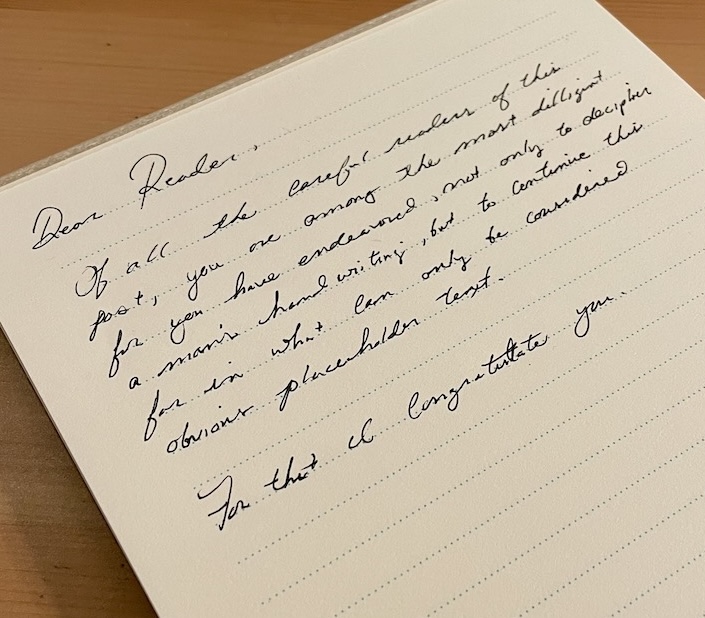 Dear Reader,
Of all the careful readers of this
post, you are among the most dilligent
for you have endeavored, not only to decipher
a man's handwriting, but to continue this
far in what can only be considered
obvious placeholder text.
For that I congratulate you.